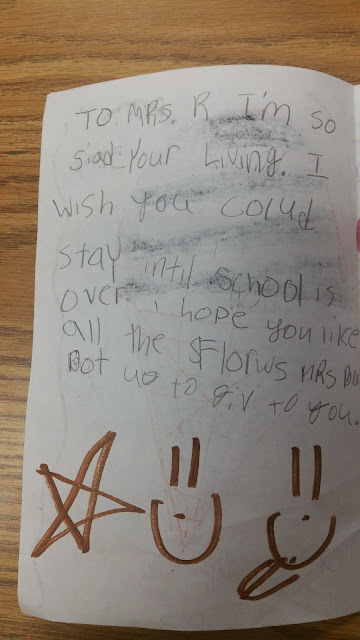 TO MRS. R I'm so
siad your Living. I
wish you colud
stay intil school is
over i hope you like
all the Florws MRS
got us to giv to you.